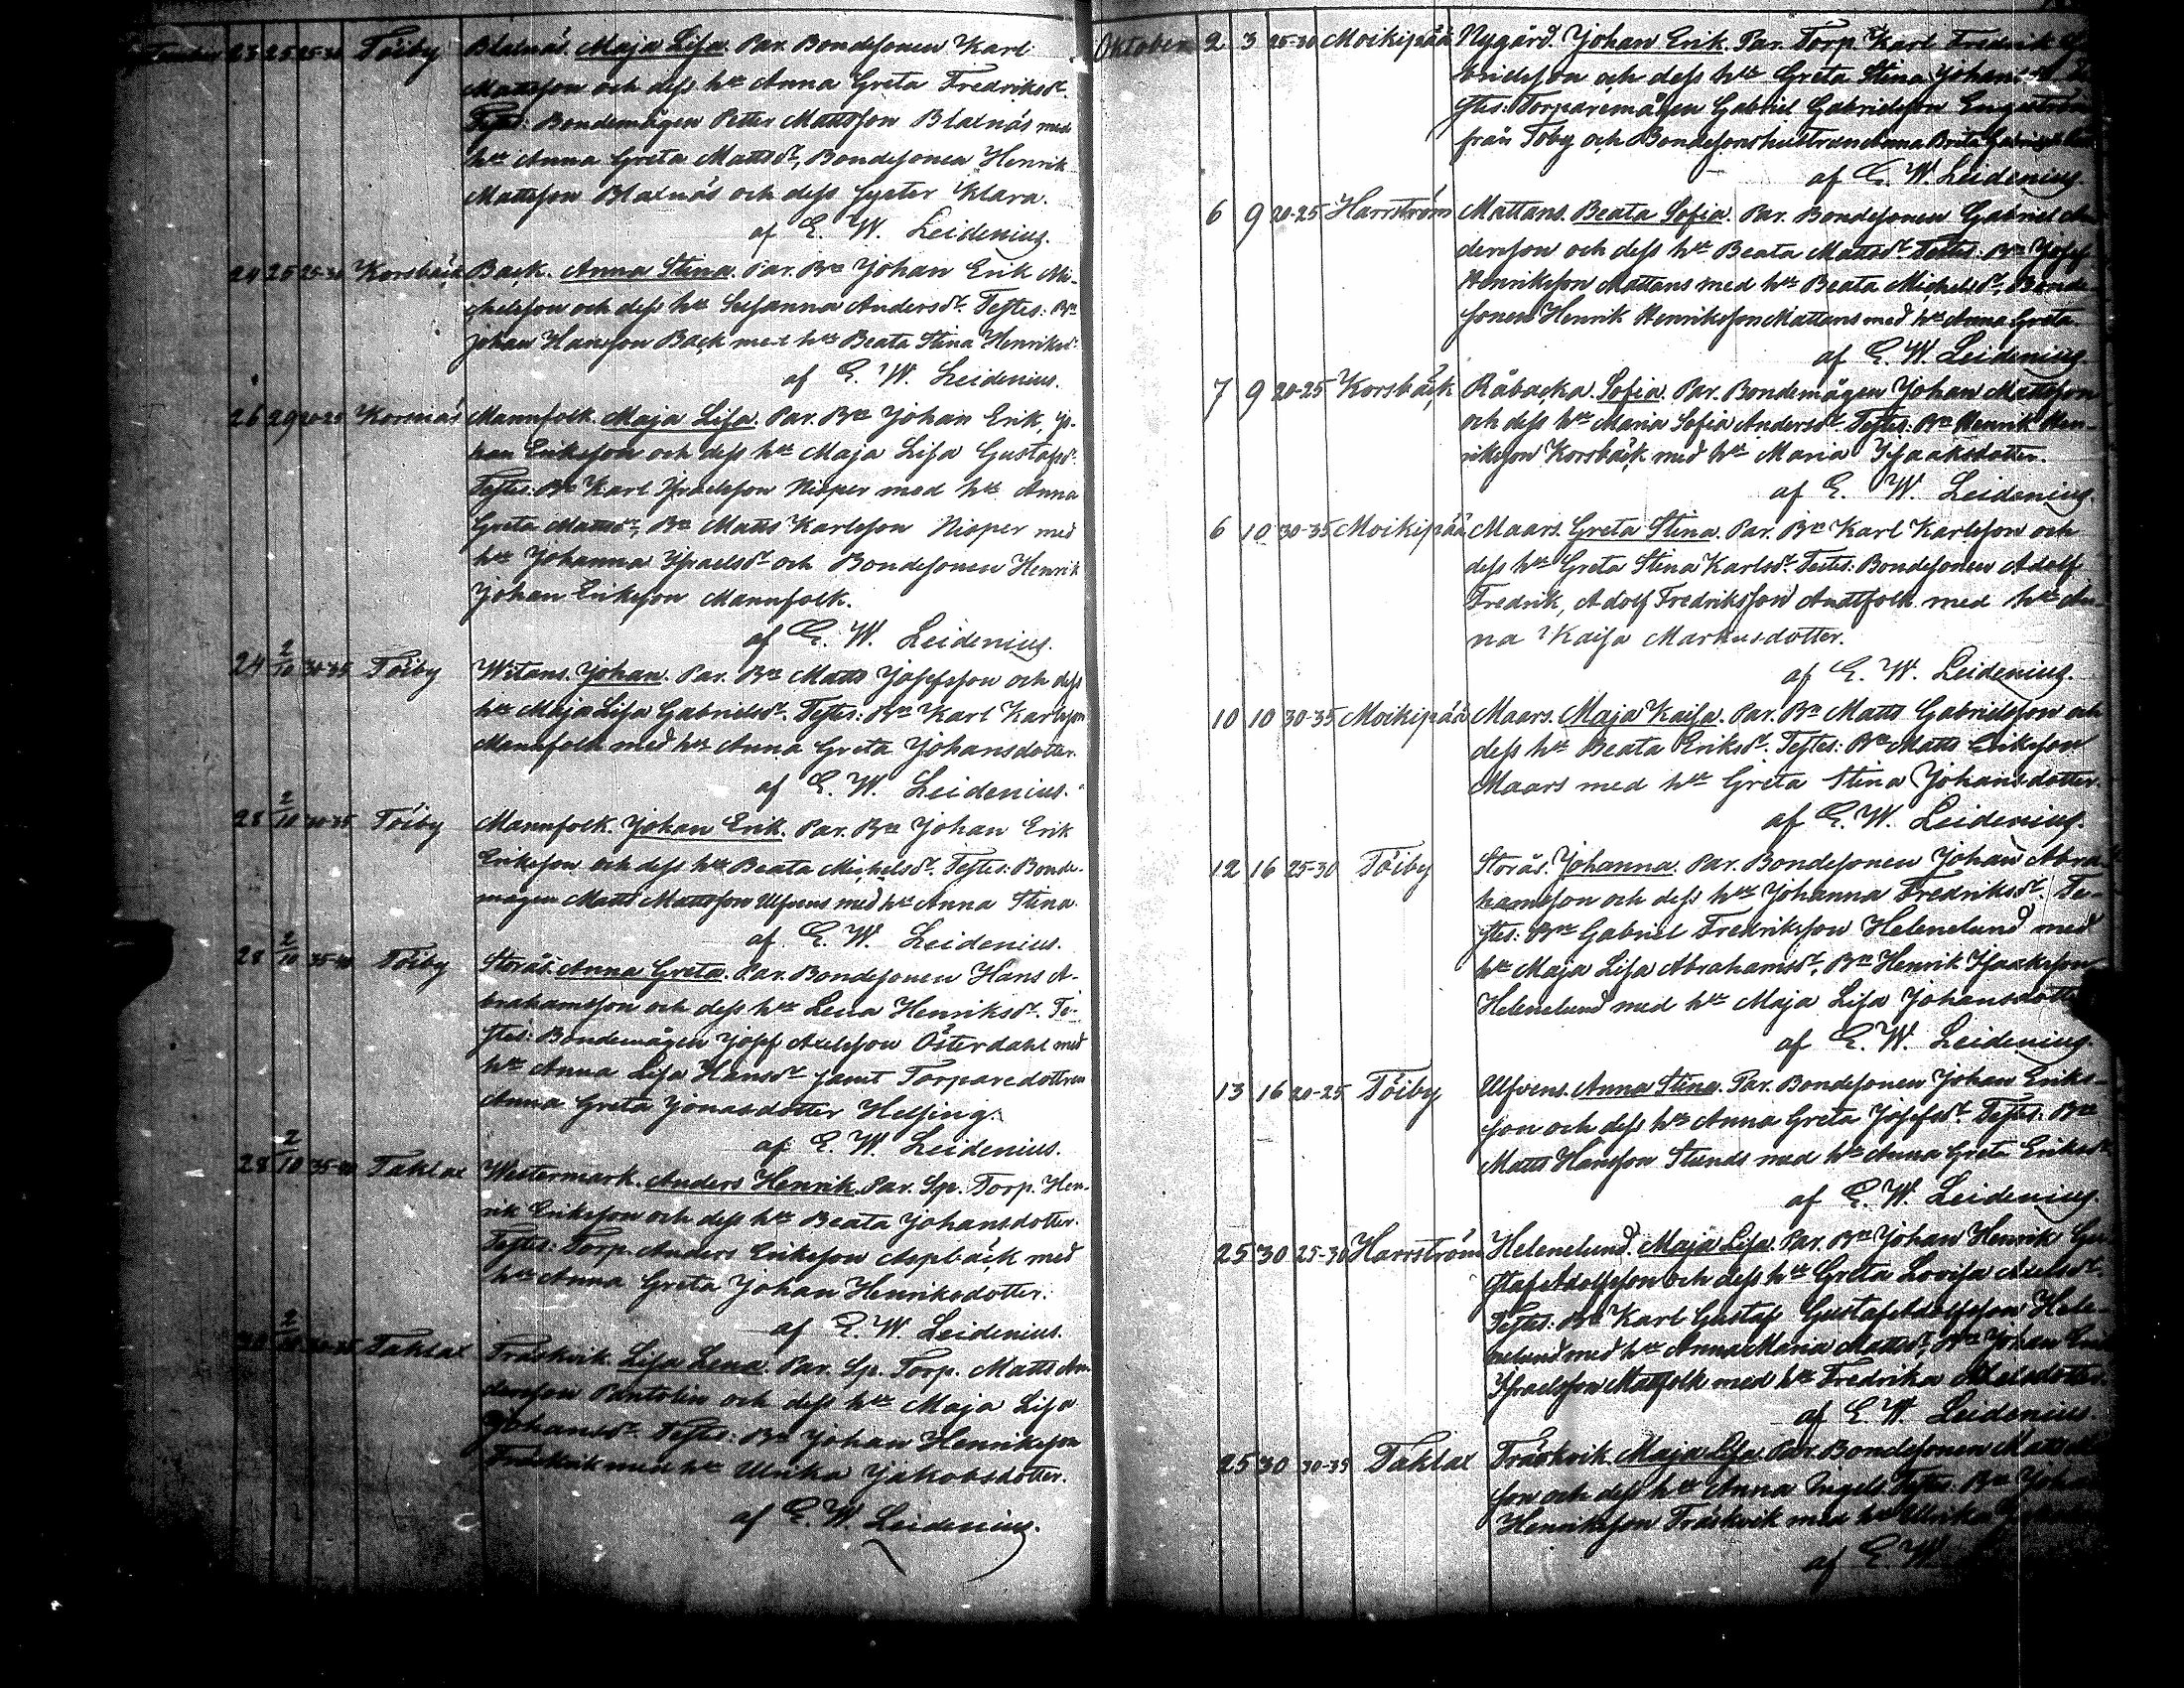 23 25 25-30 Töiby Blaxnäs. Maja Lisa. Par. Bondesonen Karl
Mattsson och dess h:u Anna Greta Fredriksd:r
Testes: Bondemågen Petter Mattsson Blaxnäs med
h:u Anna Greta Mattsd:r, Bondesonen Henrik
Mattsson Blaxnäs och dess syster Klara.
af E. W. Leidenius.
24 25 25-30 Korsbäck Back. Anna Stina. Par. B:n Johan Erik Mi-
chelsson och dess h:u Susanna Andersd:r. Testes: B:n
Johan Hansson Back med h:u Beata Stina Henriksd:r
af E. W. Leidenius.
26 29 20-25 Korsnäs Mannfolk. Maja Lisa. Par. B:n Johan Erik, Jo-
han Eriksson och dess h:u Maja Lisa Gustafsd:r
Testes: B:n Karl Israelsson Nisper med h:u Anna
Greta Mattsd:r, B:n Matts Karlsson Nisper med
h:u Johanna Israelsd:r och Bondesonen Henrik
Johan Eriksson Mannfolk.
af E. W. Leidenius.
24 2/10 30-35 Töiby Witans. Johan. Par. B:n Matts Josefsson och dess
h:u Maja Lisa Gabrielsd:r. Testes: B:n Karl Karlsson
Mannfolk med h:u Anna Greta Johansdotter.
af E. W. Leidenius.
28 2/10 30-35 Töiby Mannfolk. Johan Erik. Par. B:n Johan Erik
Eriksson och dess h:u Beata Michelsd:r. Testes: Bonde-
mågen Matts Mattsson Ulfvens med h:u Anna Stina.
af E. W. Leidenius.
28 2/10 35-40 Töiby Storås. Anna Greta. Par. Bondesonen Hans A-
brahamsson och dess h:u Lena Henriksd:r. Te-
stes: Bondemågen Josef Axelsson Österdahl med
h:u Anna Lisa Hansd:r samt Torparedottren
Anna Greta Jonasdotter Helsing.
af E. W. Leidenius.
28 2/10 35-40 Taklax Westermark. Anders Henrik. Par. Sp. Torp. Hen-
rik Eriksson och dess h:u Beata Johansdotter.
Testes: Torp. Anders Eriksson Aspbäck med
h:u Anna Greta Johan Henriksdotter.
af E. W. Leidenius.
30 2/10 30-35 Taklax Träskvik. Lisa Lena. Par. Sp. Torp. Matts An-
dersson Pantolin och dess h:u Maja Lisa
Johansd:r. Testes: B:n Johan Henriksson
Träskvik med h:u Ulrika Jakobsdotter.
af E. W. Leidenius.
Oktober 2 3 25-30 Moikipää Nygård. Johan Erik. Par. Torp. Karl Fredrik Ga-
brielsson och dess h:u Greta Stina Johansd:r Te-
stes: Torparemågen Gabriel Gabrielsson Engström
från Töby och Bondesonshustrun Anna Brita
af E. W. Leidenius.
6 9 20-25 Harrström Mattans. Beata Sofia. Par. Bondesonen Gabriel An-
dersson och dess h:u Beata Mattsd:r Testes: B:n Josef
Henriksson Mattans med h:u Beata Michelsd:r, Bonde-
sonen Henrik Henriksson Mattans med h:u Anna Greta.
af E. W. Leidenius.
7 9 20-25 Korsbäck Råbacka. Sofia. Par. Bondemågen Johan Mattsson
och dess h:u Maria Sofia Andersd:r. Testes: B:n Henrik Hen-
riksson Korsbäck med h:u Maria Isaaksdotter.
af E. W. Leidenius.
6 10 30-35 Moikipää Maars. Greta Stina. Par. B:n Karl Karlsson och
dess h:u Greta Stina Karlsd:r. Testes: Bondesonen Adolf
Fredrik, Adolf Fredriksson Anttfolk med h:u An-
na Kaisa Markusdotter.
af E. W. Leidenius.
10 10 30-35 Moikipää Maars. Maja Kaisa. Par. B:n Matts Gabrielsson och
dess h:u Beata Eriksd:r. Testes: B:n Matts Eriksson
Maars med h:u Greta Stina Johansdotter.
af E. W. Leidenius.
12 16 25-30 Töiby Storås. Johanna. Par. Bondesonen Johan Abra-
hamsson och dess h:u Johanna Fredriksd:r. Te-
stes: B:n Gabriel Fredriksson Helenelund med
h:u Maja Lisa Abrahamsd:r, B:n Henrik Isaaksson
Helenelund med h:u Maja Lisa Johansdotter
af E. W. Leidenius.
13 16 20-25 Töiby Ulfvens. Anna Stina. Par. Bondesonen Johan Eriks-
son och dess h:u Anna Greta Josefsd:r. Testes: B:n
Matts Hansson Stunds med h:u Anna Greta Eriksd:r
af E. W. Leidenius.
25 30 25-30 Harrström Helenelund. Maja Lisa. Par. B:n Johan Henrik Gu-
stafAdolfsson och dess h:u Greta Lovisa Axelsd:r.
Testes: B:n Karl Gustaf GustafAdolfsson Hele-
nelund med h:u Anna Maria Mattsd:r, B:n Johan Erik
Israelsson Mattfolk med h:u Fredrika Axelsdotter.
af E. W. Leidenius.
25 30 30-35 Taklax Träskvik. Maja Lisa. Par. Bondesonen Matts
son och dess h:u Anna Ingels. Testes: B:n Johan
Henriksson Träskvik med h:u Ulrika
af E. W.